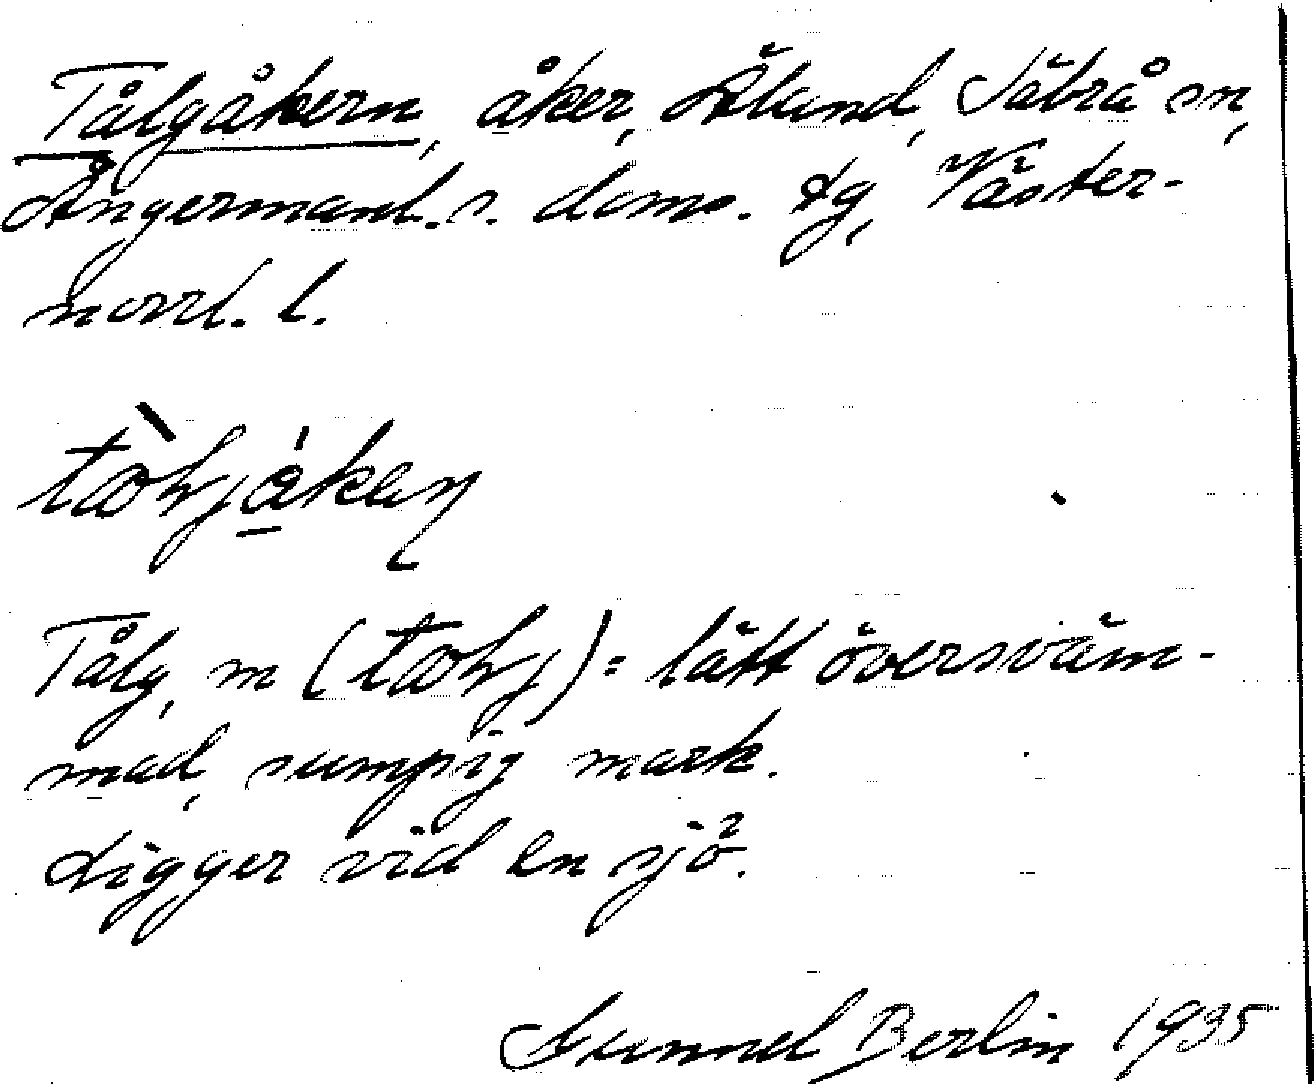 Tålgåkern, åker, Åland, Säbrå sn,
Ångermanl. s. doms. tg, Väster-
norrl. l.
Tålg, m ( ) = lätt översväm-
mad, sumpig mark.
Ligger vid en sjö.
Gunnel Berlin 1935